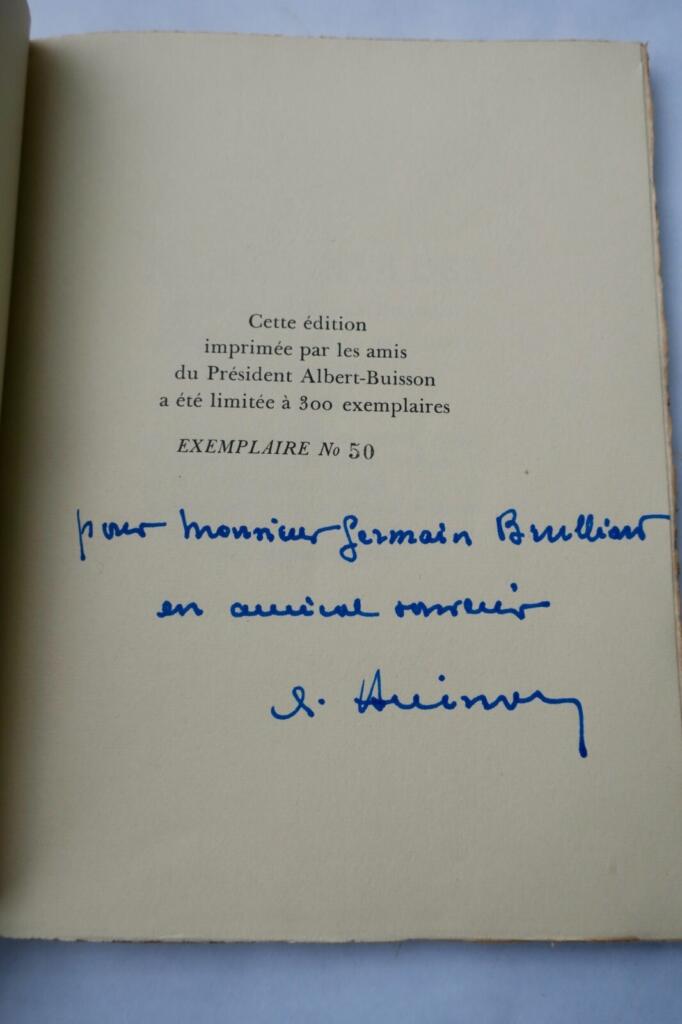 Cette édition
imprimée par les amis
du Président Albert-Buisson
a été limitée à 300 exemplaires
EXEMPLAIRE No 50
pour Monsieur Germain Brulliard
en amical souvenir